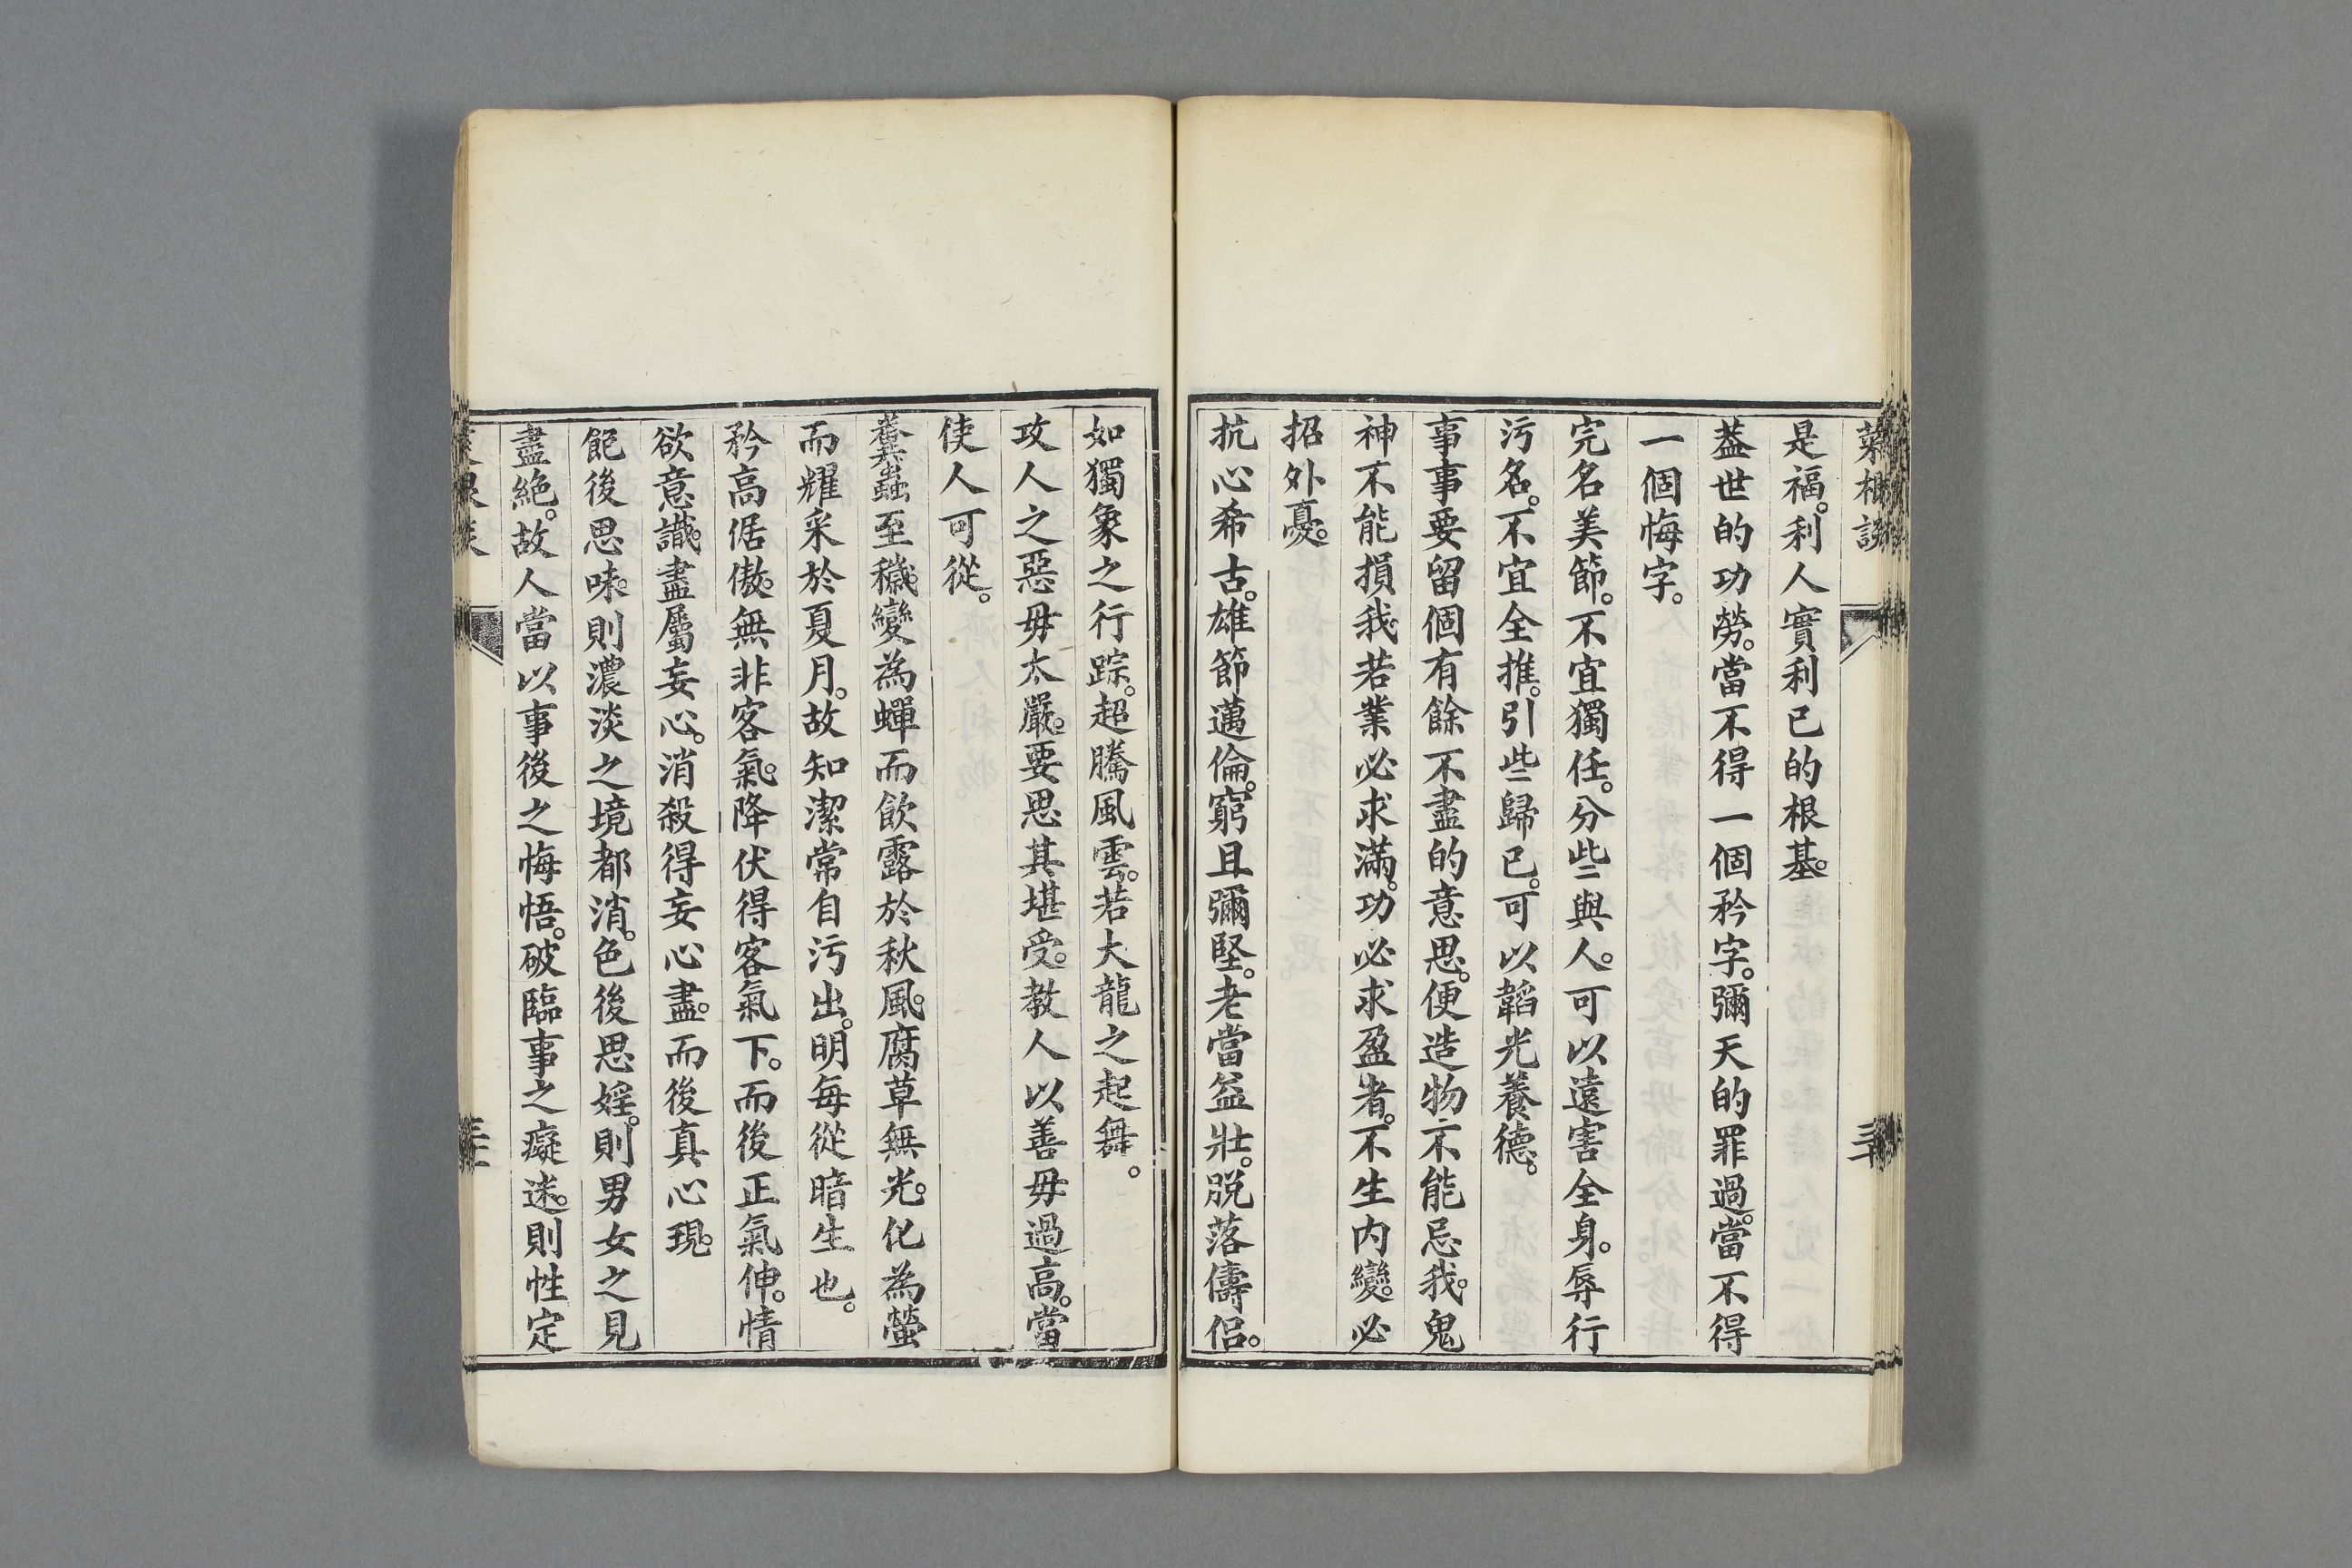 菜根談
是福。利人實利已的根基。
葢世的功勞。當不得一個矜字。彌天的罪過。當不得
一個悔字。
完名美節。不宜獨任。分些與人。可以遠害全身。辱行
污名。不宜全推。引些歸已。可以韜光養德。
事事要留個有餘不盡的意思。便造物不能忌我。鬼
神不能損我。若業必求滿。功必求盈者。不生内變。必
招外憂。
抗心希古。雄節邁倫。窮且彌堅。老當益壯。脱落儔侣。
如獨象之行踪。超騰風雲。若大龍之起舞。
攻人之惡毋太嚴。要思其堪受。教人以善毋過高。當
使人可從。
糞蟲至穢。變為蟬而飲露於秋風。腐草無光。化為螢
而耀采於夏月。故知潔常自污出。明每從暗生也。
矜高倨傲。無非客氣。降伏得客氣下。而後正氣伸。情
欲意識。盡屬妄心。消殺得妄心盡。而後真心現。
飽後思味。則濃淡之境都消。色後思婬。則男女之見
盡絶。故人當以事後之悔悟。破臨事之癡迷。則性定